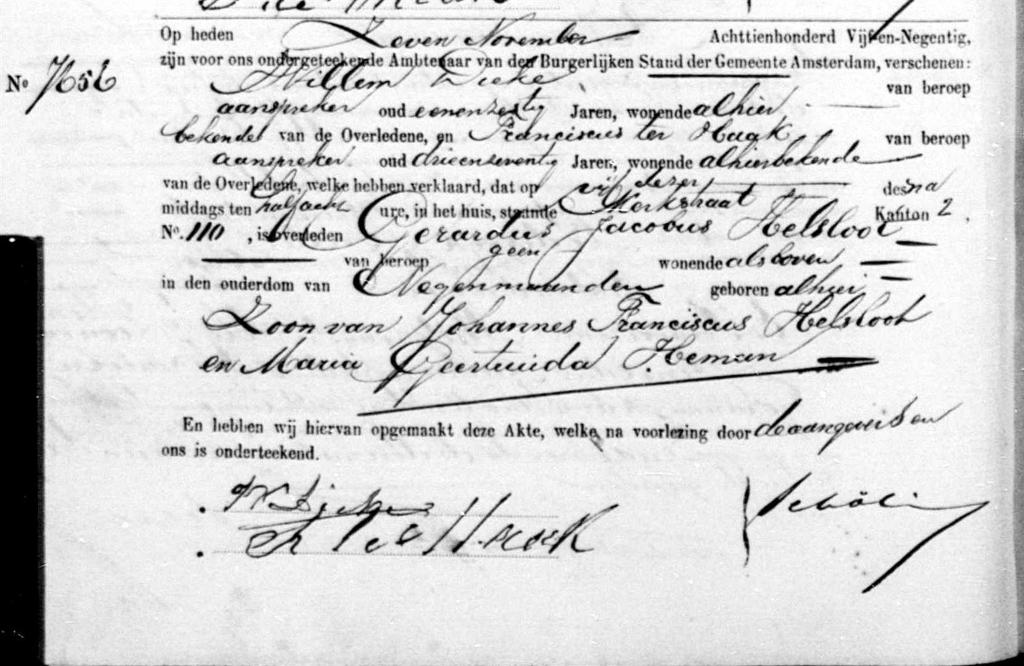 Op heden Zeven November Achttienhonderd Vijf-en-Negentig,
zijn voor ons ondergeteekende Ambtenaar van den Burgerlijken Stand der Gemeente Amsterdam, verschenen:
No 7652 Willem van beroep
aanspreker oud eenenzestig Jaren, wonende alhier
bekende van de Overledene, en Franciscus ter Haak van beroep
aanspreker oud drieenseventig Jaren, wonende alhier bekende
van de Overledene, welke hebben verklaard, dat op vijf dezer des na
middags ten half acht ure, in het huis, staande Kerkstraat Kanton 2.
No. 110, is overleden Gerardus Jacobus Helsloot
van beroep geen wonende als boven
in den ouderdom van Negen maanden geboren alhier
Zoon van Johannes Franciscus Helsloot
en Maria Geertruida Heman
En hebben wij hiervan opgemaakt deze Akte, welke na voorlezing door de aangevers en
ons is onderteekend.